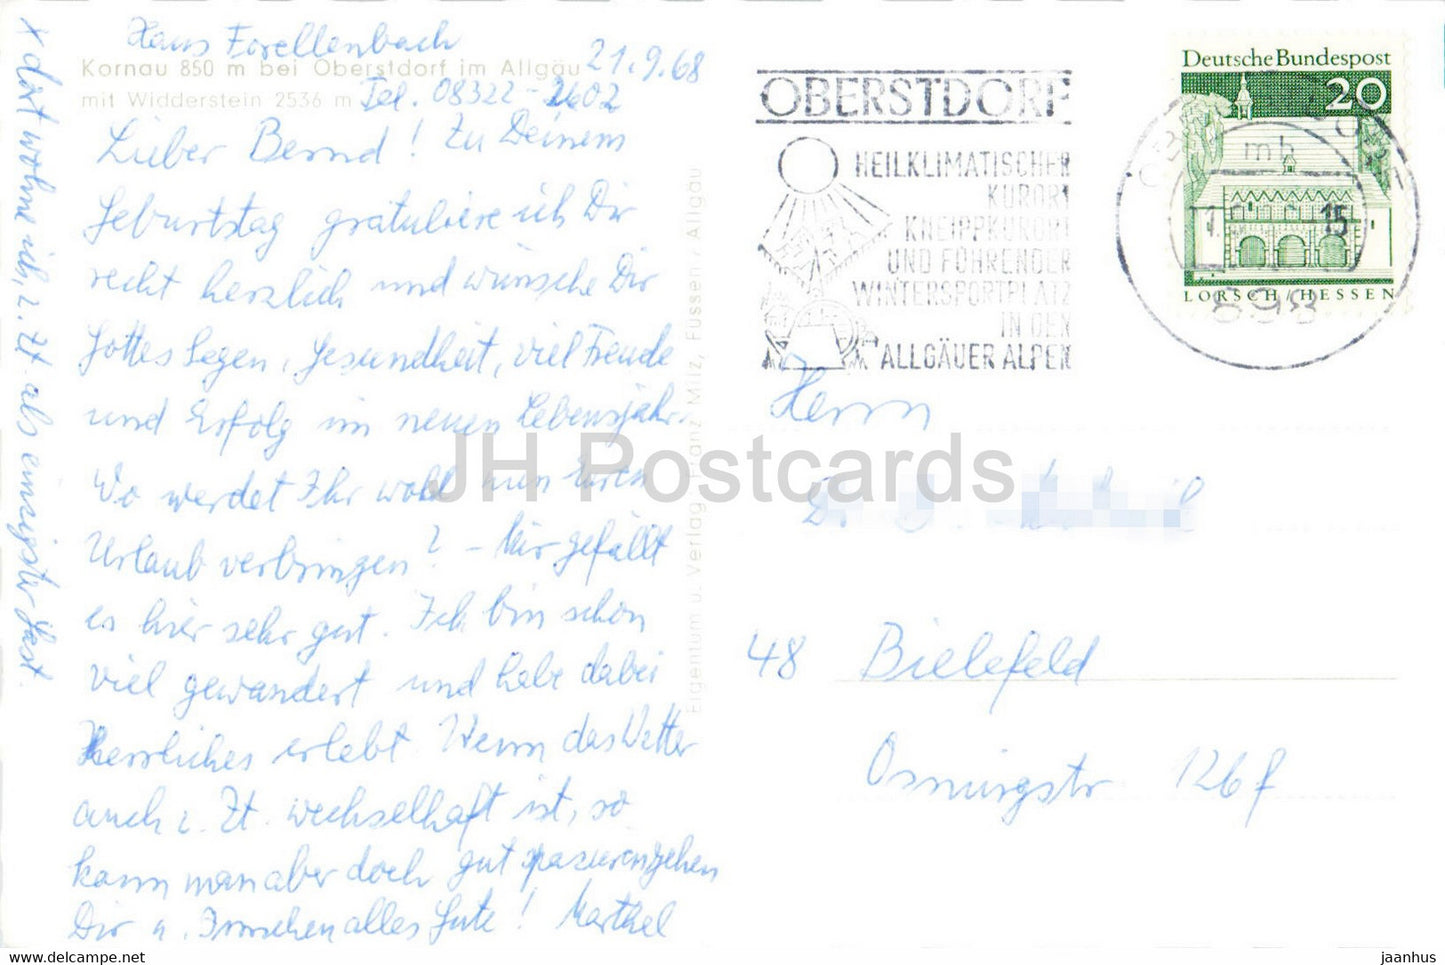 Haus Forellenbach
Kornau 850 m bei Oberstdorf im Allgäu
21.9.68
mit Widderstein 2536 m
Tel. 08322-2602
Lieber Bernd! Zu Deinem
Geburtstag gratuliere ich Dir
recht herzlich und wünsche Dir
Gottes Segen, Gesundheit, viel Freude
und Erfolg im neuen Lebensjahr.
Wo werdet Ihr wohl nun Euren
Urlaub verbringen? – Mir gefällt
es hier sehr gut. Ich bin schon
viel gewandert und habe dabei
Herrliches erlebt. Wenn das Wetter
auch z. Zt. wechselhaft ist, so
kann man aber doch gut spazierengehen
Dir u. alles Gute!
x dort wohne ich, z. Zt. als einzigster Gast.
Eigentum u. Verlag Franz Milz, Füssen / Allgäu
OBERSTDORF
HEILKLIMATISCHER
KURORT
KNEIPPKURORT
UND FÜHRENDER
WINTERSPORTPLATZ
IN DEN
ALLGÄUER ALPEN
Deutsche Bundespost
20
LORSCH/HESSEN
mh
15
898
Herrn
48 Bielefeld
Osningstr. 126f
JH Postcards
hip.com
jaanhus